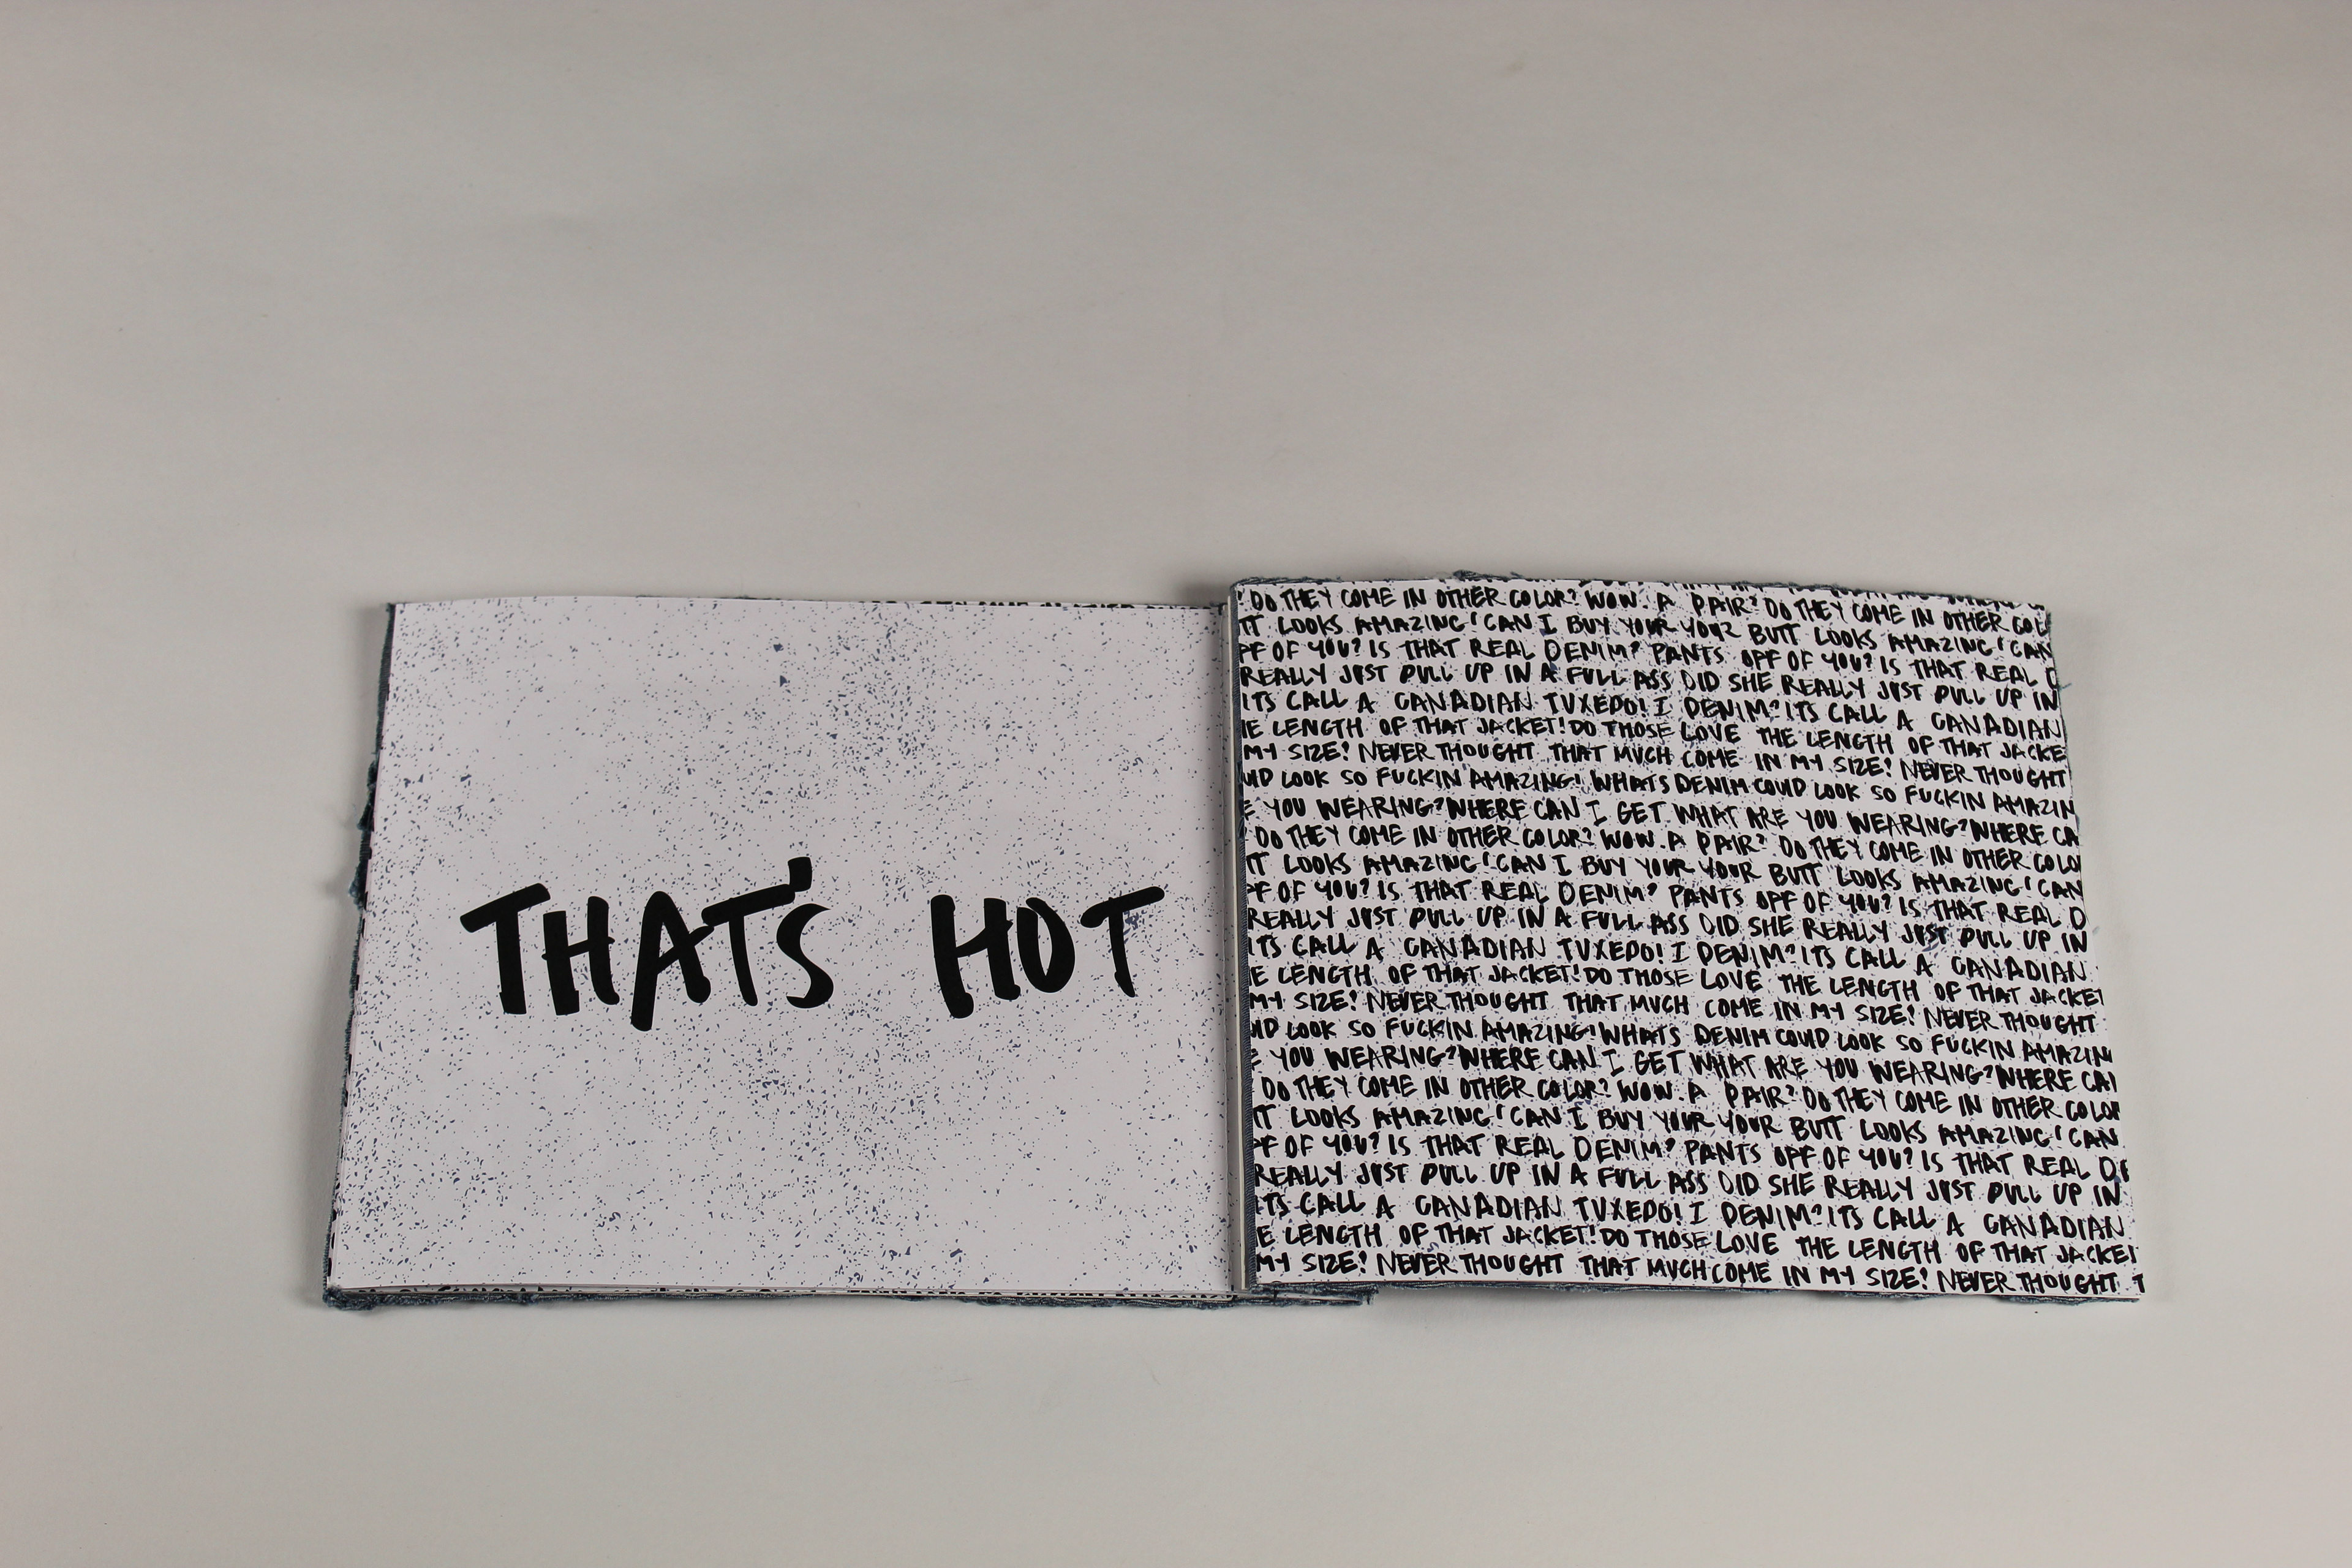 THAT'S HOT
! DO THEY COME IN OTHER COLOR? WOW. A PAIR? DO THEY COME IN OTHER COL
TT LOOKS AMAZING! CAN I BUY YOUR YOUR BUTT LOOKS AMAZING! CAN
OFF OF YOU? IS THAT REAL DENIM? PANTS OFF OF YOU? IS THAT REAL D
REALLY JUST PULL UP IN A FULL ASS DID SHE REALLY JUST PULL UP IN
ITS CALL A CANADIAN TUXEDO! I DENIM? ITS CALL A CANADIAN
E LENGTH OF THAT JACKET! DO THOSE LOVE THE LENGTH OF THAT JACKE
MY SIZE? NEVER THOUGHT THAT MUCH COME IN MY SIZE? NEVER THOUGHT
ULD LOOK SO FUCKIN AMAZING! WHATS DENIM COULD LOOK SO FUCKIN AMAZIN
E YOU WEARING? WHERE CAN I GET WHAT ARE YOU WEARING? WHERE CA
! DO THEY COME IN OTHER COLOR? WOW. A PAIR? DO THEY COME IN OTHER COLO
TT LOOKS AMAZING! CAN I BUY YOUR YOUR BUTT LOOKS AMAZING! CAN
FF OF YOU? IS THAT REAL DENIM? PANTS OFF OF YOU? IS THAT REAL D
REALLY JUST PULL UP IN A FULL ASS DID SHE REALLY JUST PULL UP IN
ITS CALL A CANADIAN TUXEDO! I DENIM? ITS CALL A CANADIAN
E LENGTH OF THAT JACKET! DO THOSE LOVE THE LENGTH OF THAT JACKET
MY SIZE? NEVER THOUGHT THAT MUCH COME IN MY SIZE? NEVER THOUGHT
ULD LOOK SO FUCKIN AMAZING! WHATS DENIM COULD LOOK SO FUCKIN AMAZIN
E YOU WEARING? WHERE CAN I GET WHAT ARE YOU WEARING? WHERE CAN
DO THEY COME IN OTHER COLOR? WOW. A PAIR? DO THEY COME IN OTHER COLOR
TT LOOKS AMAZING! CAN I BUY YOUR YOUR BUTT LOOKS AMAZING! CAN
FF OF YOU? IS THAT REAL DENIM? PANTS OFF OF YOU? IS THAT REAL DE
REALLY JUST PULL UP IN A FULL ASS DID SHE REALLY JUST PULL UP IN
ITS CALL A CANADIAN TUXEDO! I DENIM? ITS CALL A CANADIAN
E LENGTH OF THAT JACKET! DO THOSE LOVE THE LENGTH OF THAT JACKET
MY SIZE? NEVER THOUGHT THAT MUCH COME IN MY SIZE? NEVER THOUGHT T